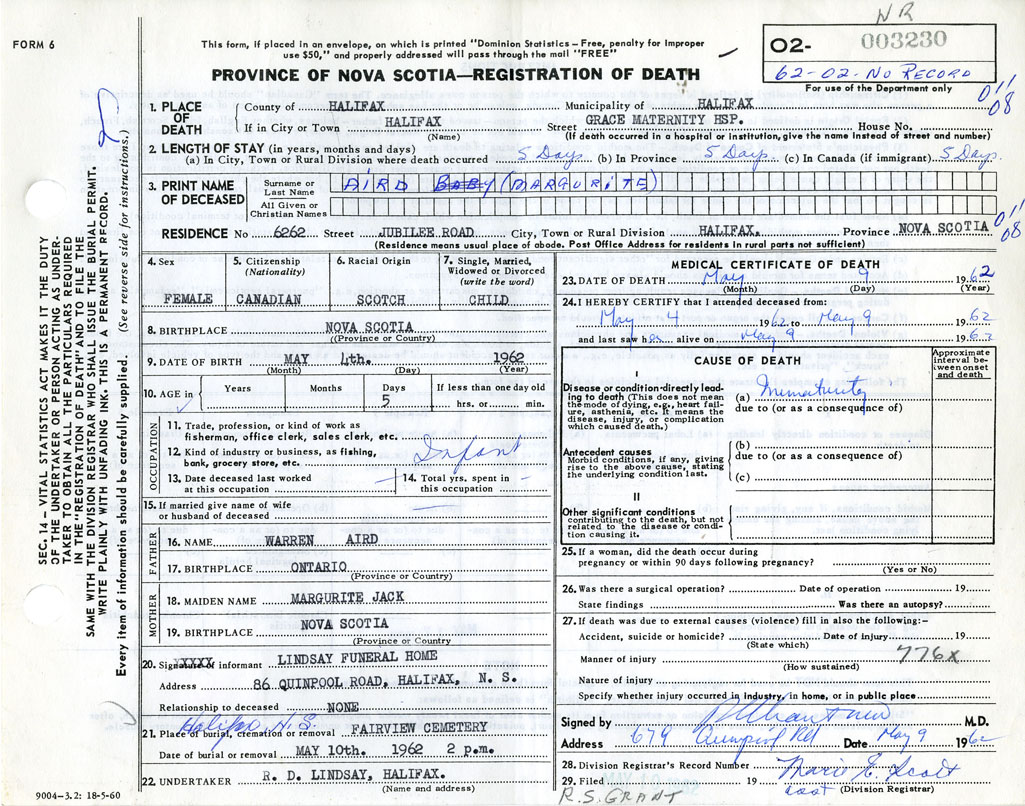 NR
FORM 6
This form, if placed in an envelope, on which is printed "Dominion Statistics – Free, penalty for improper
use $50," and properly addressed will pass through the mail "FREE"
02- 003230
62-02-No Record
For use of the Department only
PROVINCE OF NOVA SCOTIA—REGISTRATION OF DEATH
01'
08
1. PLACE OF DEATH
County of HALIFAX Municipality of HALIFAX
If in City or Town HALIFAX Street GRACE MATERNITY HSP. House No.
(Name) (If death occurred in a hospital or institution, give the name instead of street and number)
2. LENGTH OF STAY (in years, months and days)
(a) In City, Town or Rural Division where death occurred 5 Days (b) In Province 5 Days. (c) In Canada (if immigrant) 5 Days.
3. PRINT NAME OF DECEASED
Surname or Last Name AIRD BABY (MARGURITE)
All Given or Christian Names
RESIDENCE No 6262 Street JUBILEE ROAD City, Town or Rural Division HALIFAX. Province NOVA SCOTIA
01'
08
(Residence means usual place of abode. Post Office Address for residents in rural parts not sufficient)
4. Sex
FEMALE
5. Citizenship
(Nationality)
CANADIAN
6. Racial Origin
SCOTCH
7. Single, Married,
Widowed or Divorced
(write the word)
CHILD
8. BIRTHPLACE NOVA SCOTIA
((Province or Country)
9. DATE OF BIRTH MAY 4th. 1962
(Month) (Day) (Year)
10. AGE in
Years Months Days If less than one day old
5 hrs. or min.
OCCUPATION
11. Trade, profession, or kind of work as
fisherman, office clerk, sales clerk, etc.
12. Kind of industry or business, as fishing,
bank, grocery store, etc.
Infant
13. Date deceased last worked
at this occupation
14. Total yrs. spent in
this occupation
15. If married give name of wife
or husband of deceased
FATHER
16. NAME WARREN AIRD
17. BIRTHPLACE ONTARIO
(Province or Country)
MOTHER
18. MAIDEN NAME MARGURITE JACK
19. BIRTHPLACE NOVA SCOTIA
(Province or Country
20. Signature of informant LINDSAY FUNERAL HOME
XXXXX
Address 86 QUINPOOL ROAD, HALIFAX, N. S.
Relationship to deceased NONE
Halifax, N.S.
21. Place of burial, cremation or removal FAIRVIEW CEMETERY
Date of burial or removal MAY 10th. 1962 2 p.m.
22. UNDERTAKER R. D. LINDSAY, HALIFAX.
(Name and address)
MEDICAL CERTIFICATE OF DEATH
23. DATE OF DEATH May 9 1962
(Month) (Day) (Year)
24. I HEREBY CERTIFY that I attended deceased from:
May 4 1962 to May 9 1962
and last saw her alive on May 9 1962
CAUSE OF DEATH
Approximate
interval be-
tween onset
and death
I
Disease or condition directly lead-
ing to death (This does not mean
the mode of dying, e.g., heart fail-
ure, asthenia, etc. It means the
disease, injury, or complication
which caused death.)
(a) Immaturity
due to (or as a consequence of)
Antecedent causes
Morbid conditions, if any, giving
rise to the above cause, stating
the underlying condition last.
(b)
due to (or as a consequence of)
(c)
II
Other significant conditions
contributing to the death, but not
related to the disease or condi-
tion causing it.
25. If a woman, did the death occur during
pregnancy or within 90 days following pregnancy?
(Yes or No)
26. Was there a surgical operation? Date of operation 19
State findings Was there an autopsy?
27. If death was due to external causes (violence) fill in also the following:-
Accident, suicide or homicide? Date of injury 19
(State which)
Manner of injury 776x
(How sustained)
Nature of injury
Specify whether injury occurred in industry, in home, or in public place
Signed by M.D.
Address 679 Quinpool Rd Date May 9 1962
28. Division Registrar's Record Number
29. Filed 19 Marie E. Scott
asst (Division Registrar)
R.S. GRANT
SEC. 14 – VITAL STATISTICS ACT MAKES IT THE DUTY
OF THE UNDERTAKER OR PERSON ACTING AS UNDER-
TAKER TO OBTAIN ALL THE PARTICULARS REQUIRED
IN THE "REGISTRATION OF DEATH" AND TO FILE THE
SAME WITH THE DIVISION REGISTRAR WHO SHALL ISSUE THE BURIAL PERMIT.
WRITE PLAINLY WITH UNFADING INK. THIS IS A PERMANENT RECORD.
Every item of information should be carefully supplied. (See reverse side for instructions.)
9004-3.2: 18-5-60